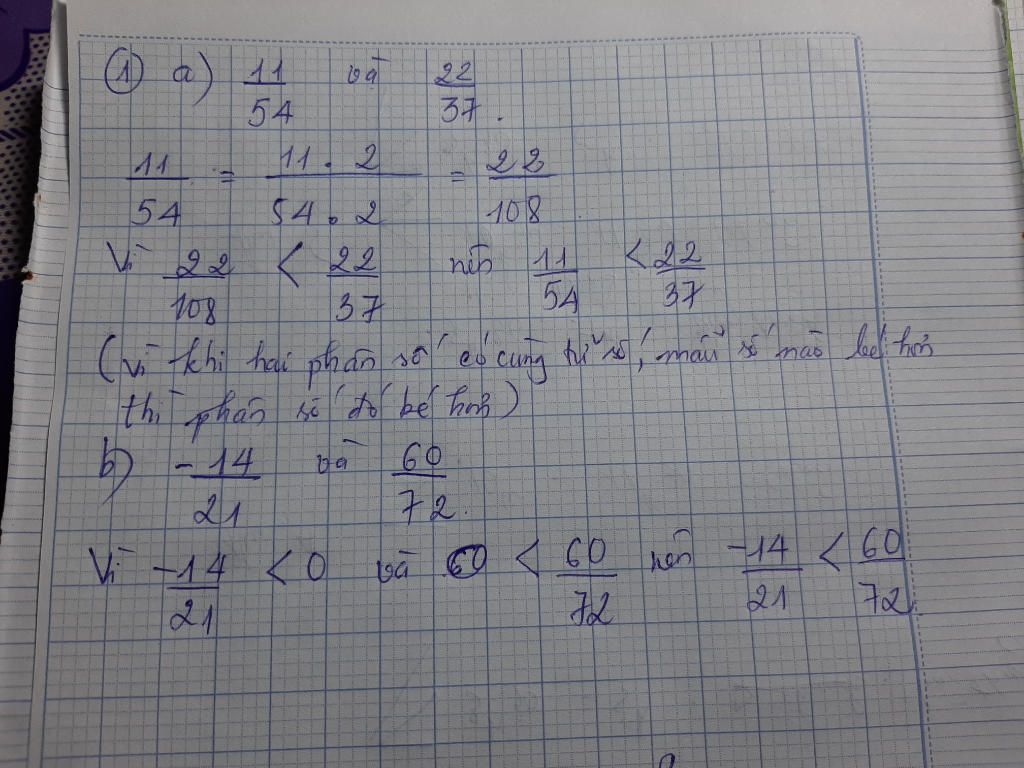 ① a) 11/54 và 22/37.
11/54 = 11.2/54.2 = 22/108
Vì 22/108 < 22/37 nên 11/54 < 22/37
(vì khi hai phân số có cùng tử số, mẫu số nào bé hơn
thì phân số đó bé hơn)
b) -14/21 và 60/72.
Vì -14/21 < 0 và 0 < 60/72 nên -14/21 < 60/72